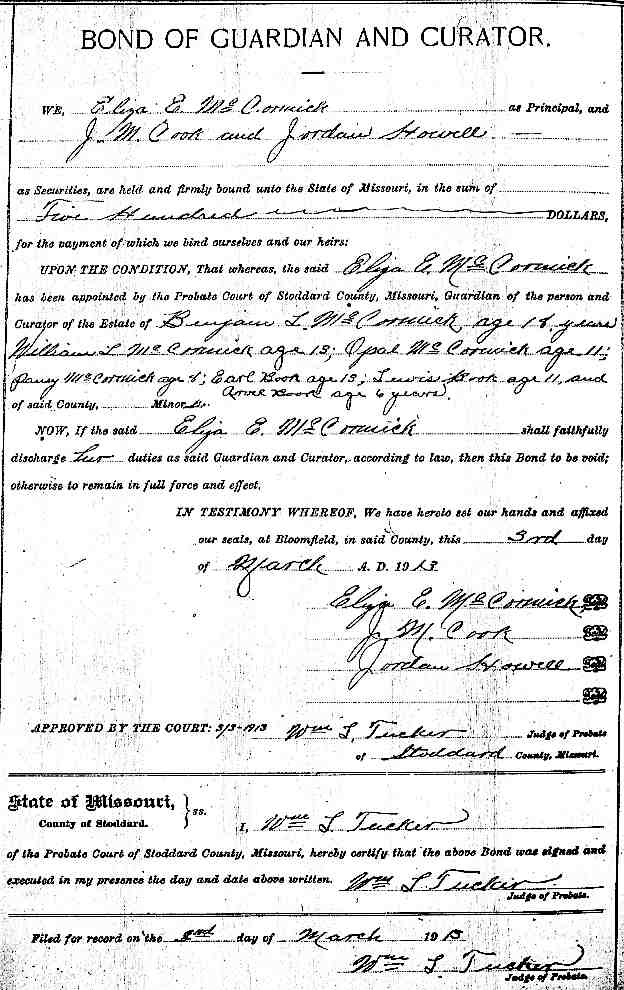 BOND OF GUARDIAN AND CURATOR.
WE, Eliza E. McCormick as Principal, and
J. M. Cook and Jordan Howell
as Securities, are held and firmly bound unto the State of Missouri, in the sum of
Five Hundred DOLLARS,
for the payment of which we bind ourselves and our heirs:
UPON THE CONDITION, That whereas, the said Eliza E. McCormick
has been appointed by the Probate Court of Stoddard County, Missouri, Guardian of the person and
Curator of the Estate of Benjam L. McCormick, age 18 years
William L McCormick age 13; Opal McCormick age 11;
Pansy McCormick age 8; Earl Book age 13; Lewis Book age 11, and
Arvel Book age 6 years.
of said County, Minors.
NOW, If the said Eliza E. McCormick shall faithfully
discharge her duties as said Guardian and Curator, according to law, then this Bond to be void;
otherwise to remain in full force and effect.
IN TESTIMONY WHEREOF, We have hereto set our hands and affixed
our seals, at Bloomfield, in said County, this 3rd day
of March A. D. 1913
Eliza E. McCormick Seal
J. M. Cook Seal
Jordan Howell Seal
Seal
APPROVED BY THE COURT: 3/3-1913 Wm L. Tucker Judge of Probate
of Stoddard County, Missouri.
State of Missouri, } ss.
County of Stoddard.
I, Wm L Tucker
of the Probate Court of Stoddard County, Missouri, hereby certify that the above Bond was signed and
executed in my presence the day and date above written. Wm L Tucker
Judge of Probate.
Filed for record on the day of March 1913
Wm L. Tucker
Judge of Probate.